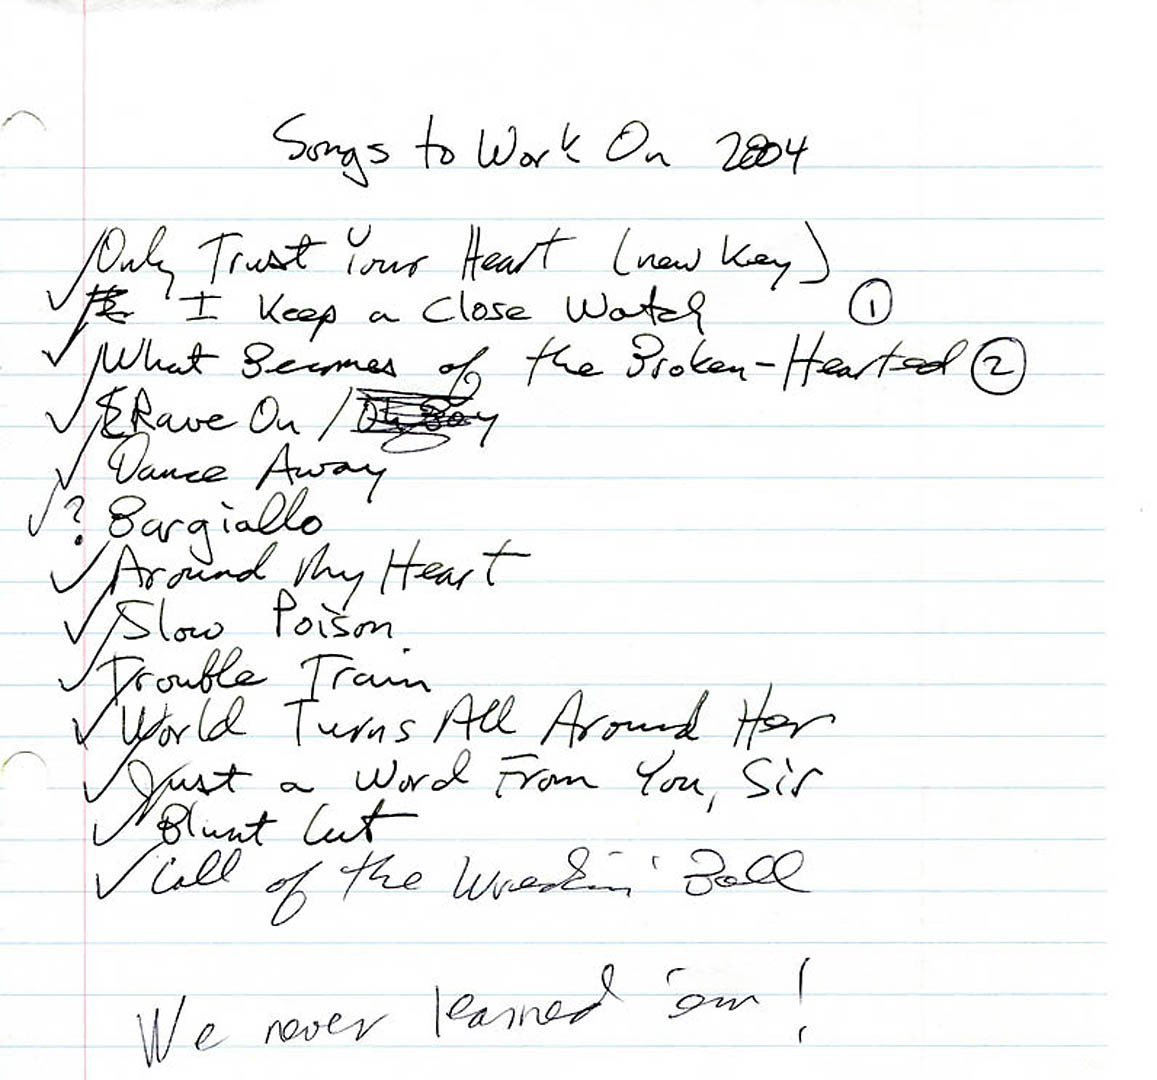 Songs to Work On 2004
✓ Only Trust Your Heart (new key)
✓ I Keep a Close Watch ①
✓ What Becomes of the Broken-Hearted ②
✓ Rave On / Oh Boy
✓ Dance Away
✓ ? Bargiallo
✓ Around My Heart
✓ Slow Poison
✓ Trouble Train
✓ World Turns All Around Her
✓ Just a Word From You, Sir
✓ Blunt Cut
✓ Call of the Wreckin' Ball
We never learned 'em!